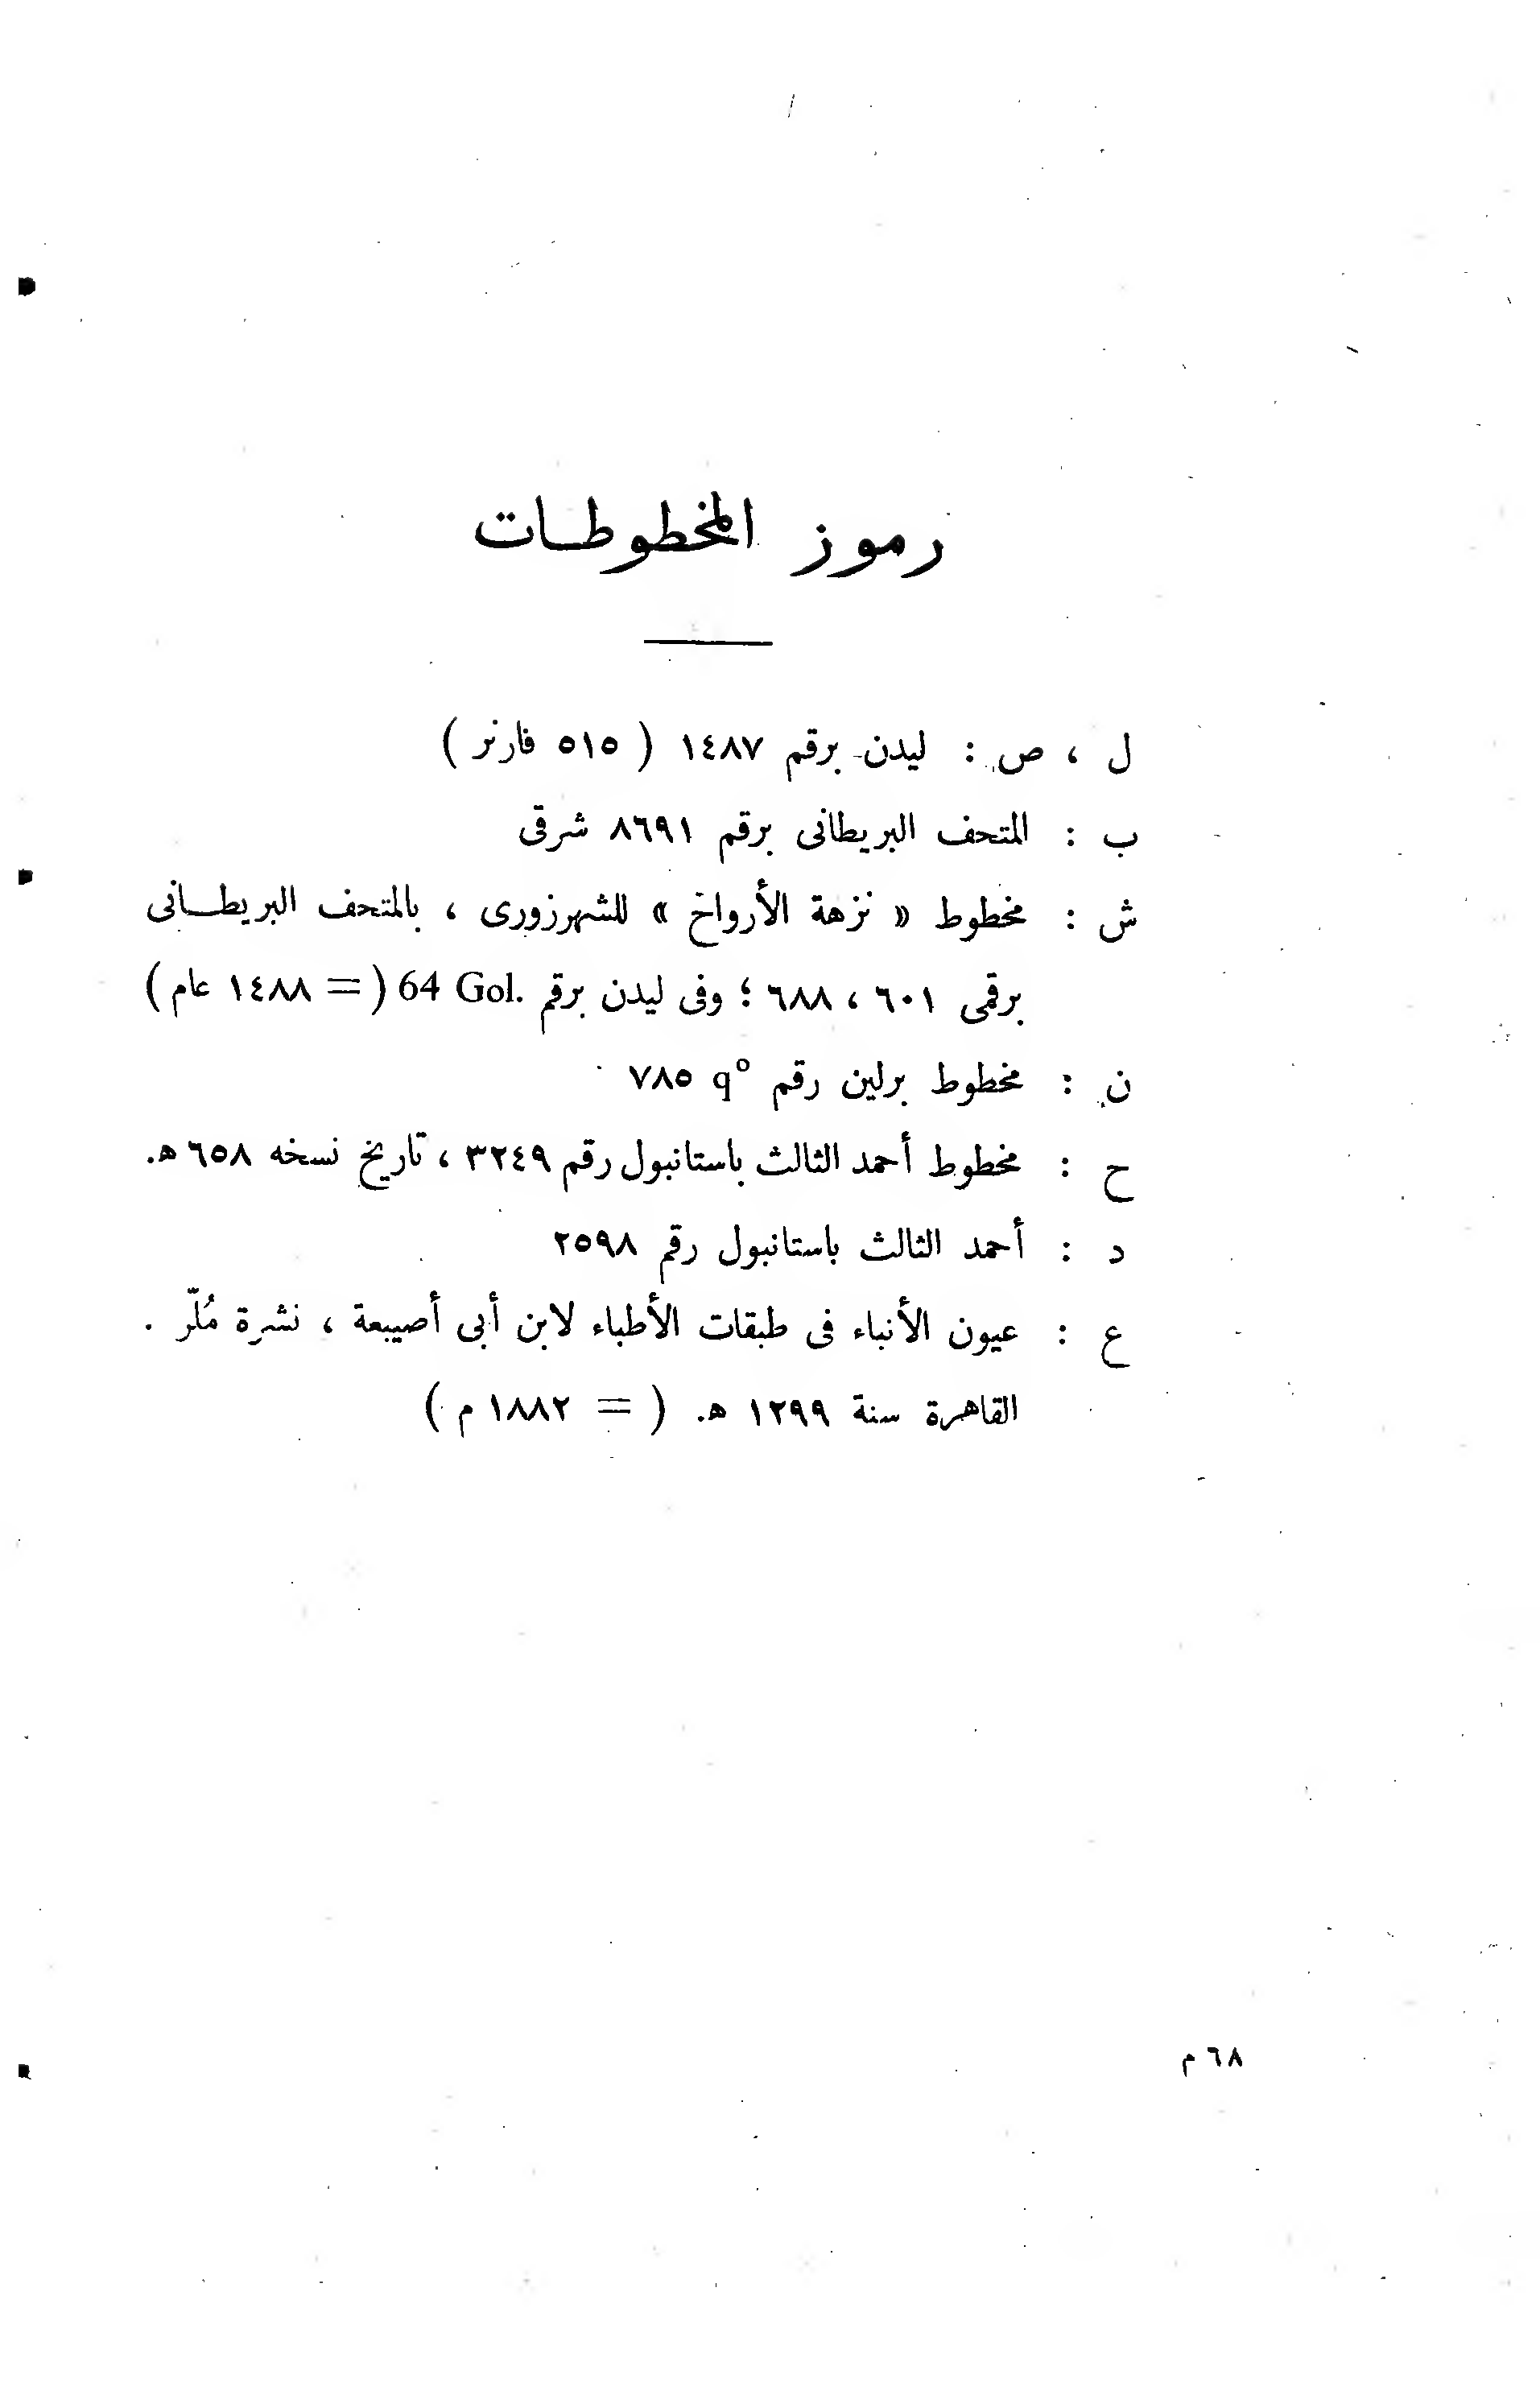 رموز المخطوطات
ل ، ص : ليدن برقم ١٤٨٧ ( ٥١٥ فارنر )
ب : المتحف البريطانى برقم ٨٦٩١ شرقى
ش : مخطوط « نزهة الأرواح » للشهرزورى ، بالمتحف البريطانى
برقمى ٦٠١ ، ٦٨٨ ؛ وفى ليدن برقم 64 Gol. ( = ١٤٨٨ عام )
ن : مخطوط برلين رقم q° ٧٨٥
ح : مخطوط أحمد الثالث باستانبول رقم ٣٢٤٩ ، تاريخ نسخه ٦٥٨ هـ.
د : أحمد الثالث باستانبول رقم ٢٥٩٨
ع : عيون الأنباء فى طبقات الأطباء لابن أبى أصيبعة ، نشرة مُلّر .
القاهرة سنة ١٢٩٩ هـ. ( = ١٨٨٢ م )
٦٨ م